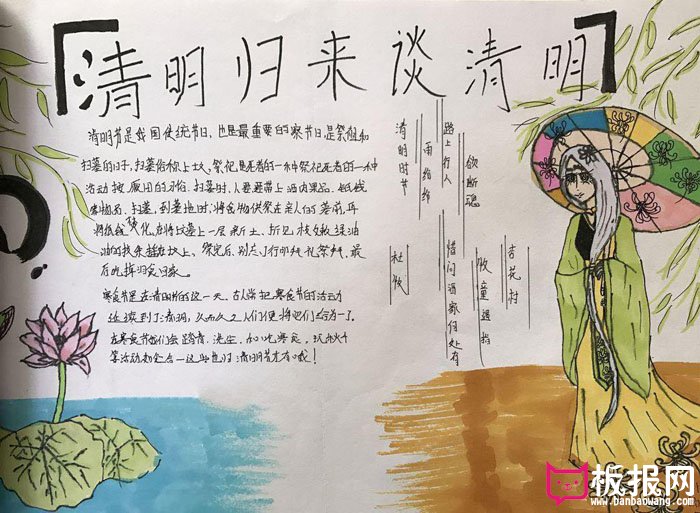 清明归来谈清明
清明节是我国传统节日，也是最重要的祭节日，是祭祖和
扫墓的日子，扫墓俗称上坟，祭祀死者的一种祭祀死者的一种
活动 按照旧的习俗，扫墓时，人要携带上酒肉果品，纸钱
等物品，扫墓，到墓地时，将食物供祭在亲人的墓前，再
将纸钱焚化，为坟墓上一层新土，折几枝嫩绿油
油的枝条插在坟上，祭完后，别忘了行叩拜礼祭拜，最
后吃掉归家
寒食节是在清明的这一天，古人常把寒食节的活动
延续到了清明，久而久之人们便将他们合为一了。
在寒食节我们会踏青、
等活动
清明时节
雨纷纷
路上行人
欲断魂
借问酒家何处有
牧童遥指
杏花村
杜牧
板报网
www.banbaowang.com